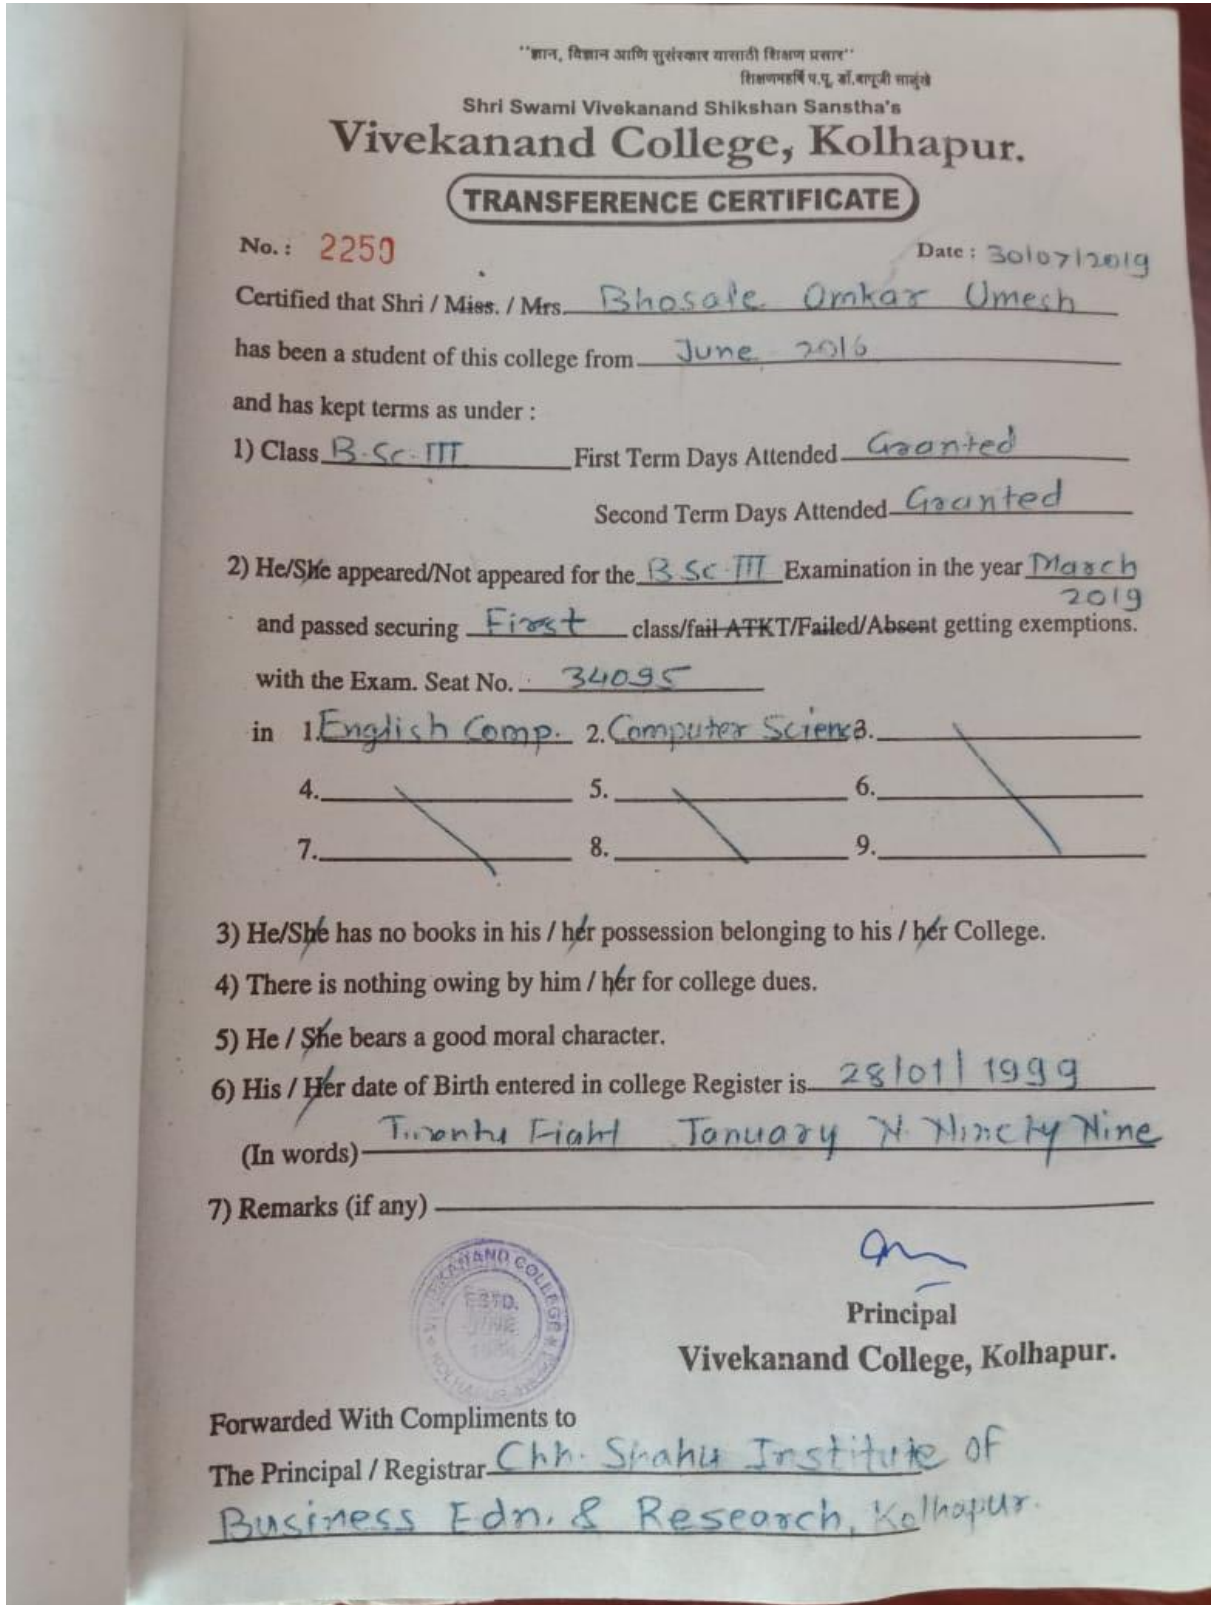 "ज्ञान, विज्ञान आणि सुसंस्कार यासाठी शिक्षण प्रसार"
शिक्षणमहर्षि प.पू. डॉ.बापूजी साळुंखे
Shri Swami Vivekanand Shikshan Sanstha's
Vivekanand College, Kolhapur.
TRANSFERENCE CERTIFICATE
No. : 2250 Date : 30/07/2019
Certified that Shri / Miss. / Mrs. Bhosale Omkar Umesh
has been a student of this college from June 2016
and has kept terms as under :
1) Class B.Sc.III First Term Days Attended Granted
Second Term Days Attended Granted
2) He/She appeared/Not appeared for the B.Sc.III Examination in the year March
2019
and passed securing First class/fail ATKT/Failed/Absent getting exemptions.
with the Exam. Seat No. 34095
in 1. English Comp. 2. Computer Science 3.
4. 5. 6.
7. 8. 9.
3) He/She has no books in his / her possession belonging to his / her College.
4) There is nothing owing by him / her for college dues.
5) He / She bears a good moral character.
6) His / Her date of Birth entered in college Register is 28/01/1999
(In words) Twenty Eight January N. Ninety Nine
7) Remarks (if any)
VIVEKANAND COLLEGE
ESTD.
JUNE
KOLHAPUR
Principal
Vivekanand College, Kolhapur.
Forwarded With Compliments to
The Principal / Registrar Chh. Shahu Institute of
Business Edn. & Research, Kolhapur.